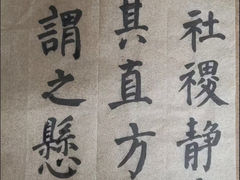 社禝静
其直方
謂之懸